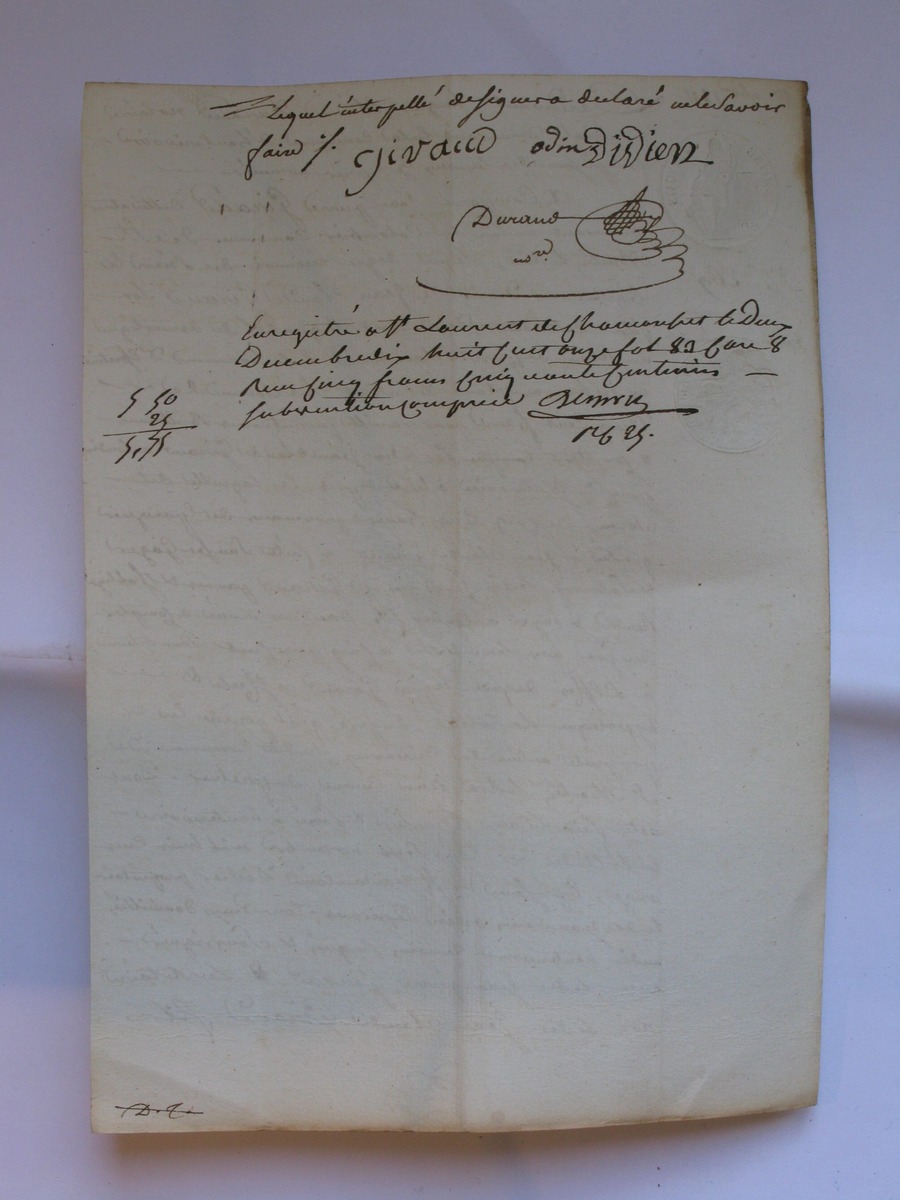 Lequel interpellé de signer a declaré ne le Savoir
faire ·/.
giraud odin didier
Durand
no.re
Enregistré a St Laurent de Chamousset le Deux
Decembre dix huit cent onze fol 83 Case 8
Reçu cinq francs cinquante centimes —
subvention comprise
5 50
25
5,75